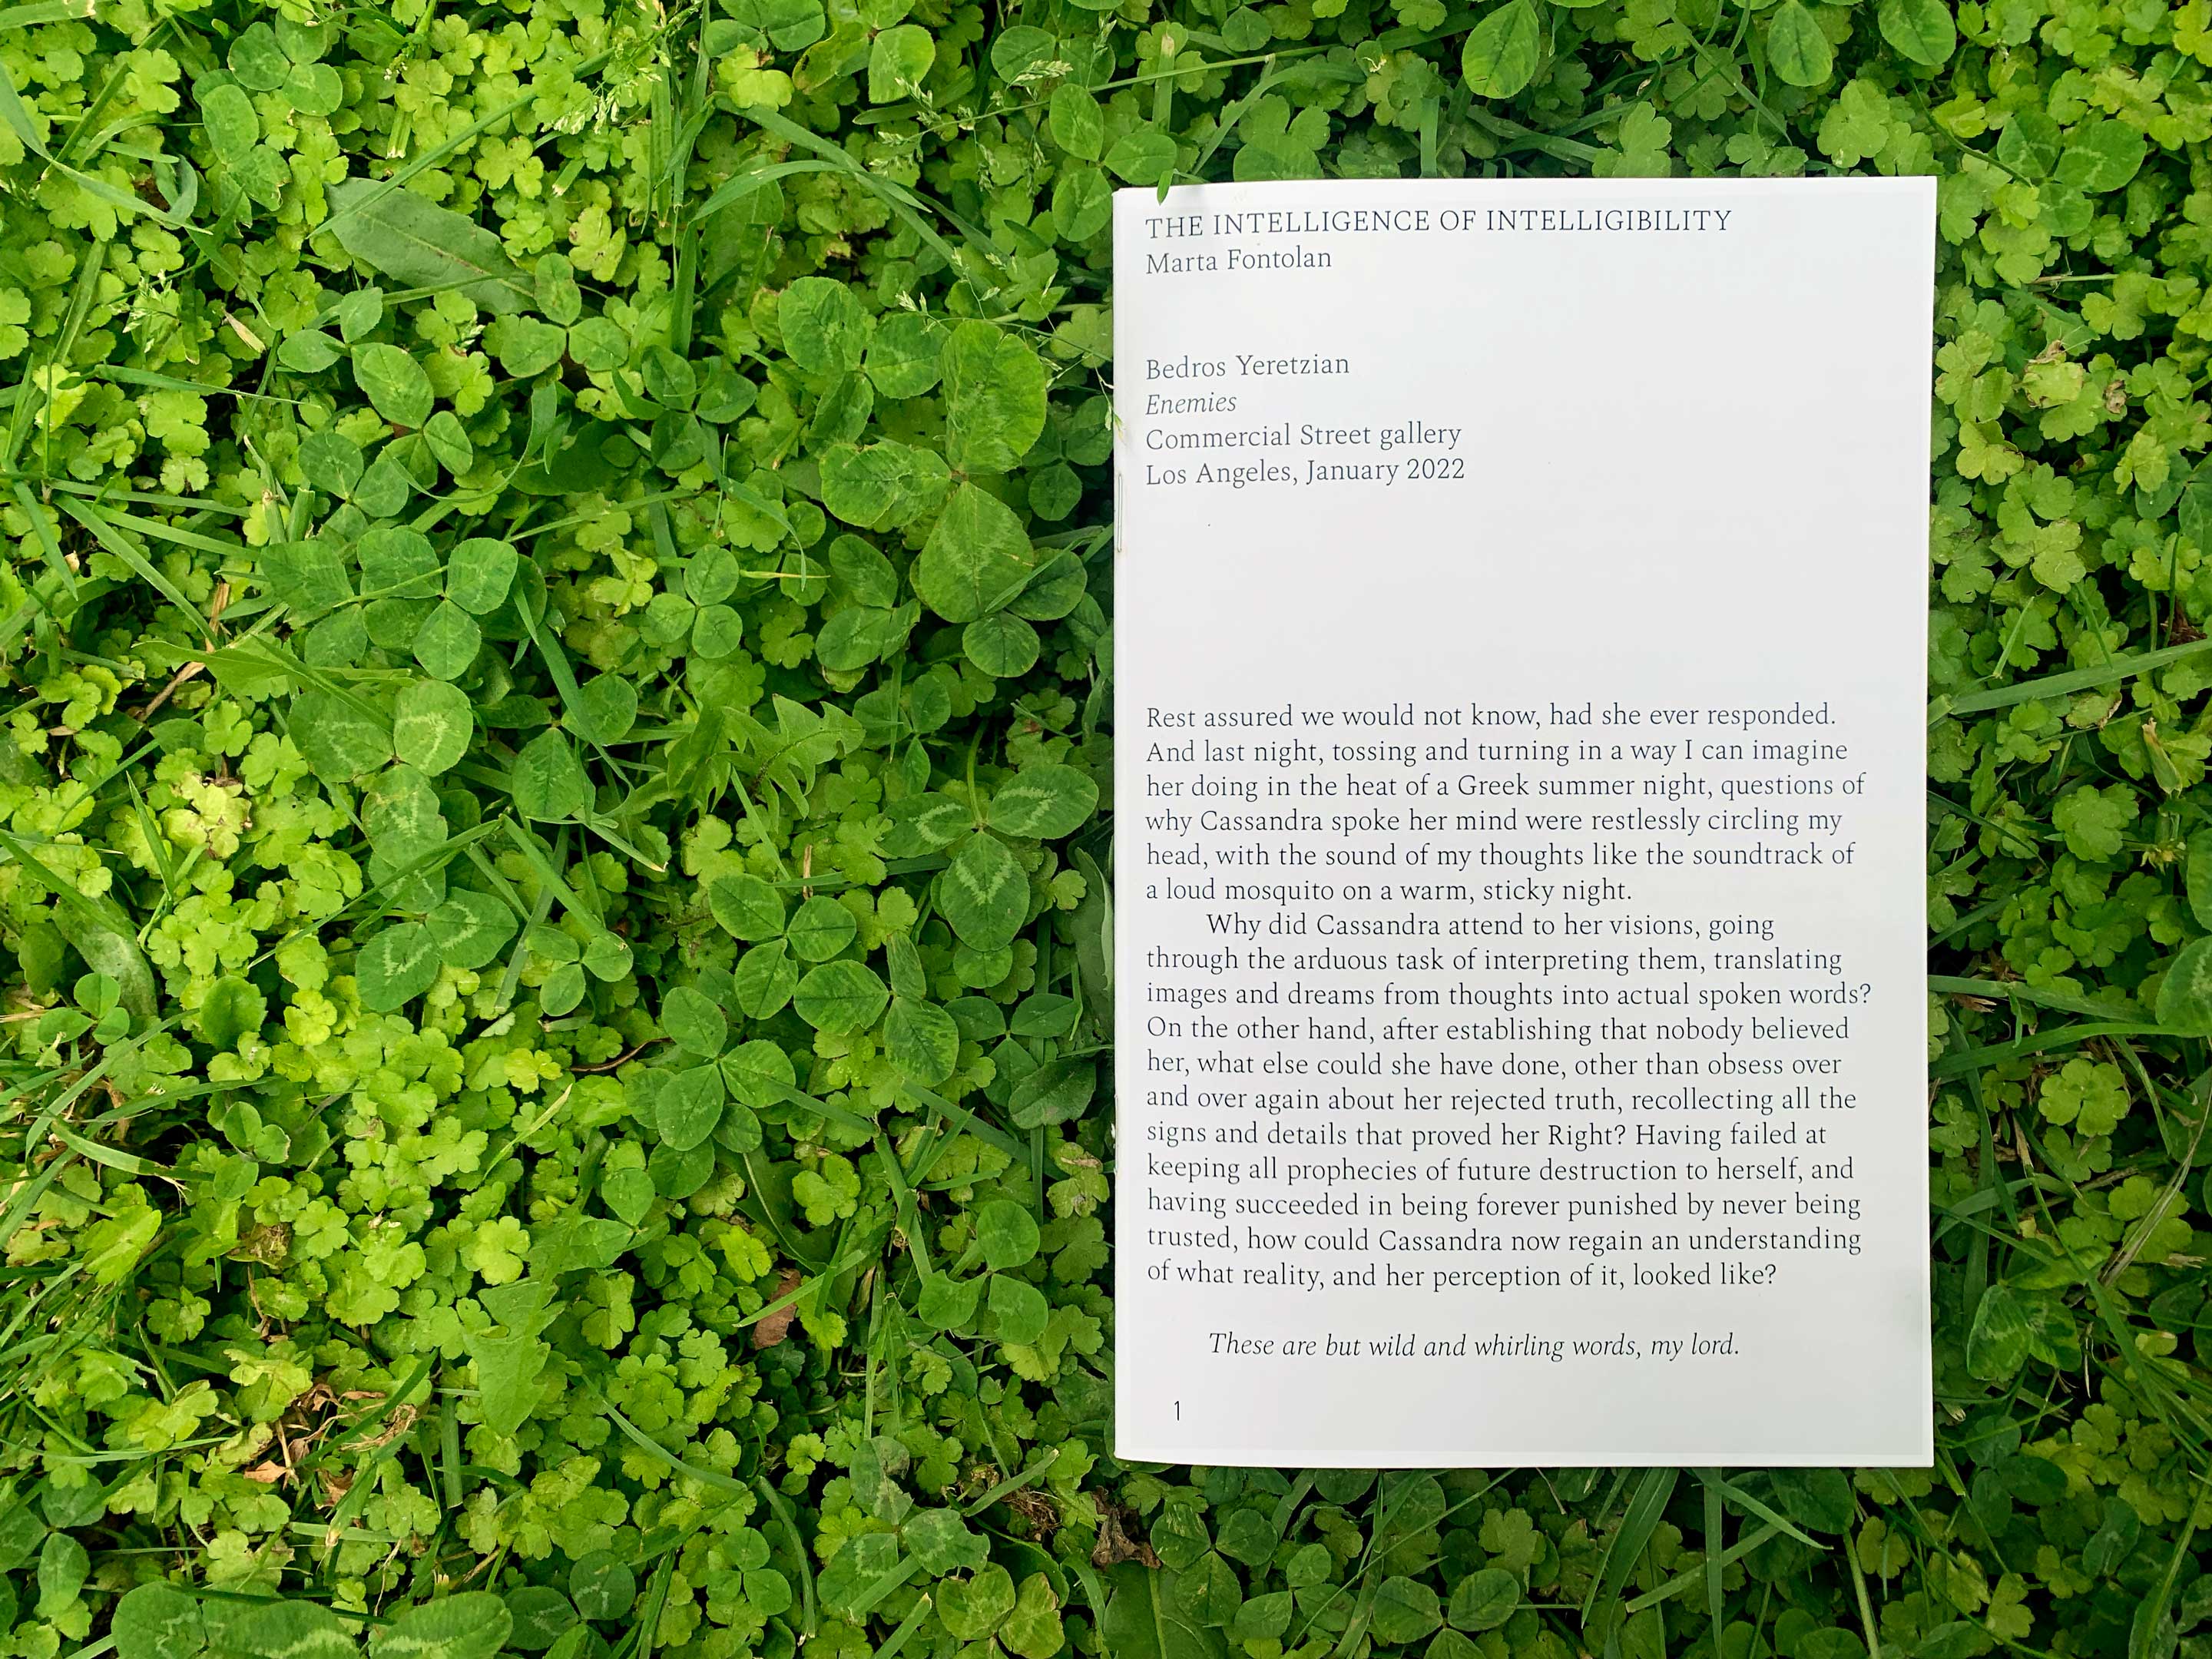 THE INTELLIGENCE OF INTELLIGIBILITY
Marta Fontolan
Bedros Yeretzian
Enemies
Commercial Street gallery
Los Angeles, January 2022
Rest assured we would not know, had she ever responded.
And last night, tossing and turning in a way I can imagine
her doing in the heat of a Greek summer night, questions of
why Cassandra spoke her mind were restlessly circling my
head, with the sound of my thoughts like the soundtrack of
a loud mosquito on a warm, sticky night.
Why did Cassandra attend to her visions, going
through the arduous task of interpreting them, translating
images and dreams from thoughts into actual spoken words?
On the other hand, after establishing that nobody believed
her, what else could she have done, other than obsess over
and over again about her rejected truth, recollecting all the
signs and details that proved her Right? Having failed at
keeping all prophecies of future destruction to herself, and
having succeeded in being forever punished by never being
trusted, how could Cassandra now regain an understanding
of what reality, and her perception of it, looked like?
These are but wild and whirling words, my lord.
1